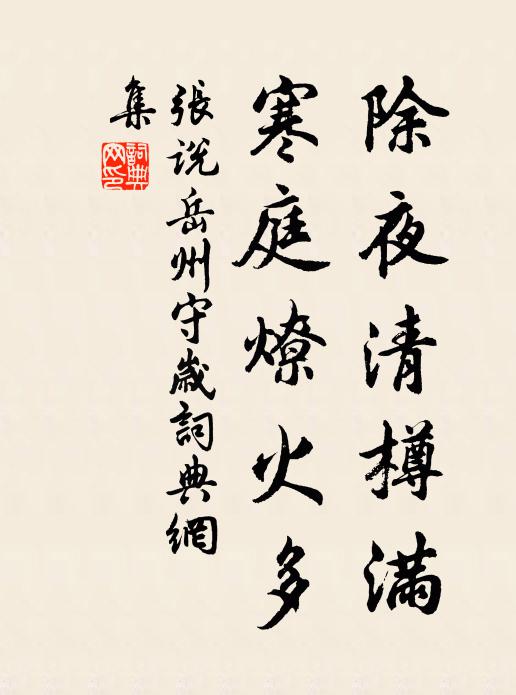 除夜清樽满
寒庭燎火多
張說岳州守歲詞典網
集
詞典
网印